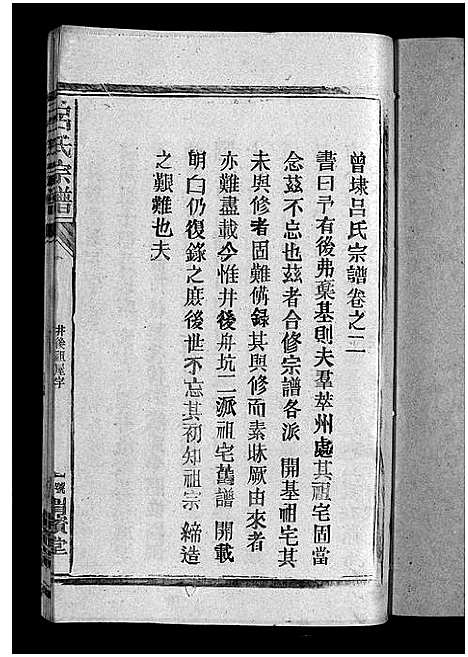 曾埭吕氏宗譜卷之二
書曰予有後弗棄基則夫羣萃州處其祖宅固當
念茲不忘也茲者合修宗譜各派 開基祖宅其
未與修者固難偹録其與修而素昧厥由來者
亦難盡載今惟井後舟坑二派祖宅舊譜 開載
明白仍復錄之庶後世不忘其初知祖宗 締造
之艱難也夫
吕氏宗譜
井後祖屋字
一號
堂